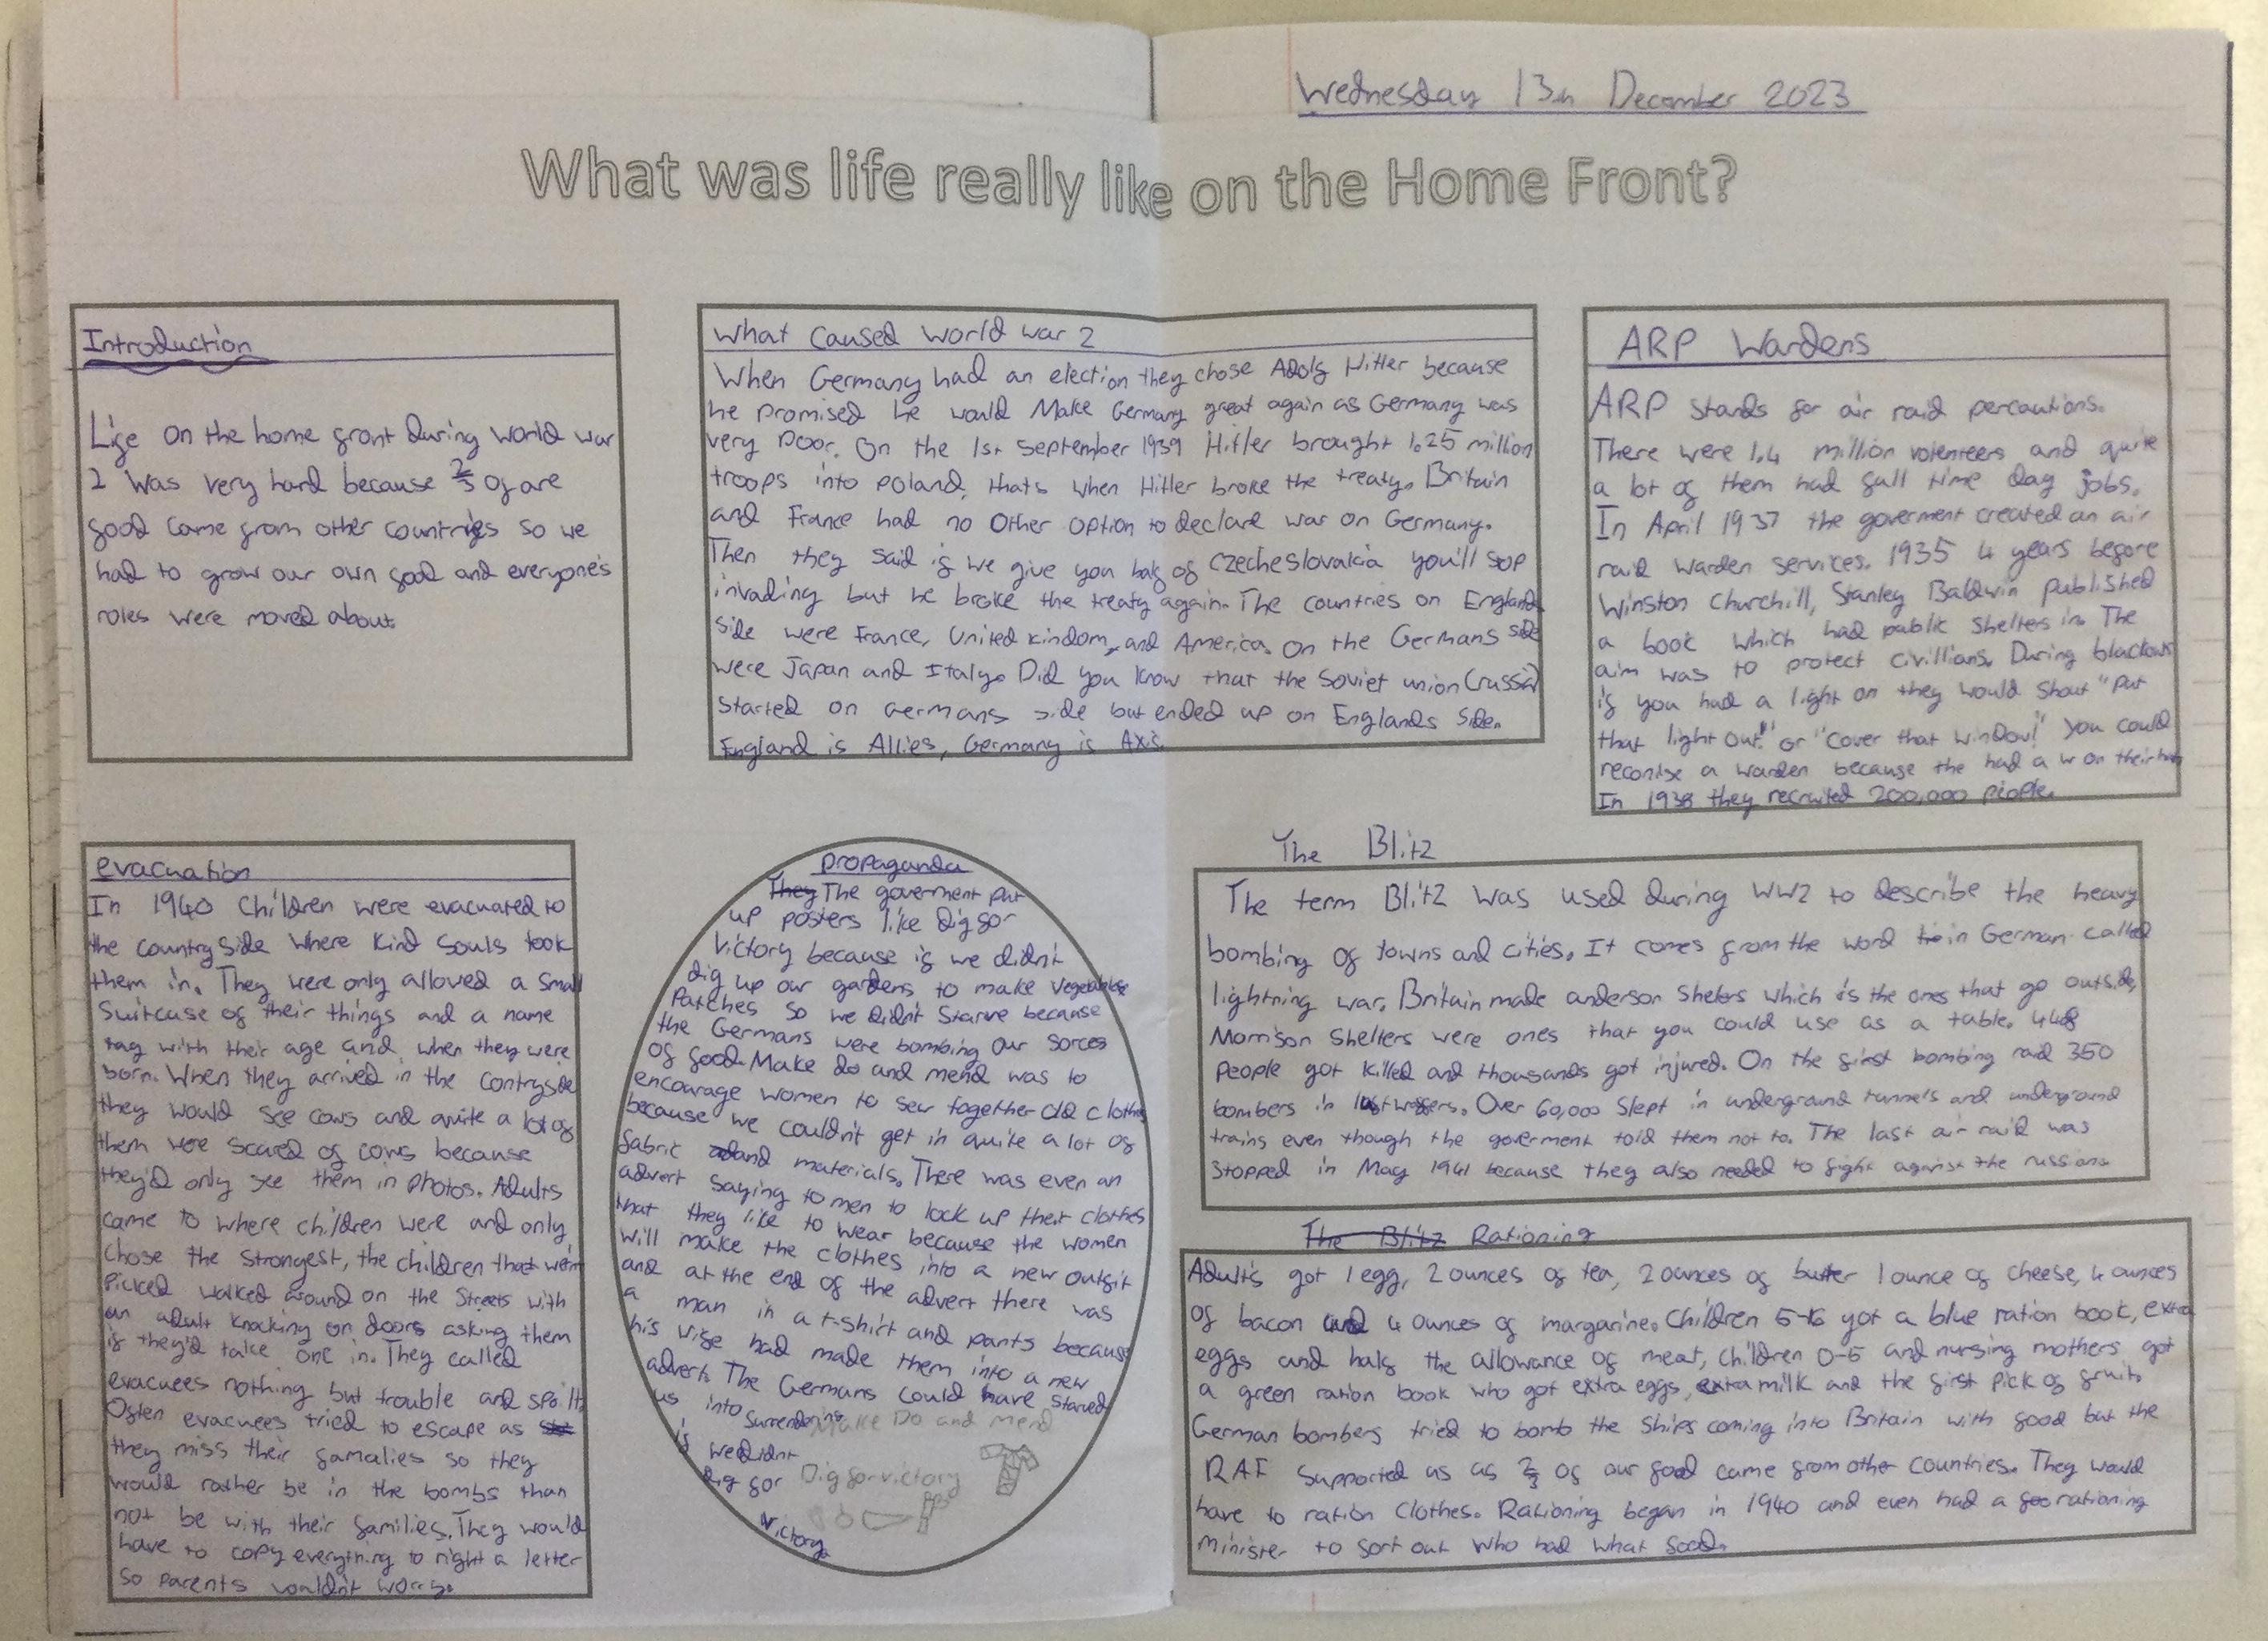 Wednesday 13th December 2023
What was life really like on the Home Front?
Introduction
Life on the home front during world war
2 was very hard because 2/3 of are
food came from other countries so we
had to grow our own food and everyone's
roles were moved about.
What Caused World war 2
When Germany had an election they chose Adolf Hitler because
he promised he would Make Germany great again as Germany was
very poor. On the 1st september 1939 Hitler brought 1.25 million
troops into poland, thats when Hitler broke the treaty. Britain
and France had no other option to declare war on Germany.
Then they said if we give you half of Czecheslovakia you'll stop
invading but he broke the treaty again. The countries on England
side were France, United kindom, and America. On the Germans side
were Japan and Italy. Did you know that the Soviet union (russia)
Started on Germans side but ended up on Englands side.
England is Allies, Germany is Axis
ARP Wardens
ARP stands for air raid percautions.
There were 1.4 million volenteers and quite
a lot of them had full time day jobs.
In April 1937 the goverment created an air
raid warden services. 1935 4 years before
Winston Churchill, Stanley Baldwin published
a book which had public shelters in. The
aim was to protect civillians. During blackouts
if you had a light on they would shout "put
that light out!" or "cover that window!" you could
reconise a warden because the had a w on their hat
In 1938 they recruited 200,000 people.
evacuation
In 1940 children were evacuated to
the country side where kind souls took
them in. They were only allowed a small
Suitcase of their things and a name
tag with their age and when they were
born. When they arrived in the contryside
they would see cows and quite a lot of
them were scared of cows because
they'd only see them in photos. Adults
came to where children were and only
chose the strongest, the children that weren't
picked walked around on the streets with
an adult knocking on doors asking them
if they'd take one in. They called
evacuees nothing but trouble and spoilt.
Often evacuees tried to escape as
they miss their famalies so they
would rather be in the bombs than
not be with their families. They would
have to copy everything to right a letter
so parents wouldn't worry.
propaganda
They The goverment put
up posters like Dig for
victory because if we didn't
dig up our gardens to make vegetables
patches so we didn't starve because
the Germans were bombing our sorces
of food. Make do and mend was to
encourage women to sew together old clothes
because we couldn't get in quite a lot of
fabric and materials. There was even an
advert saying to men to lock up their clothes
that they like to wear because the women
will make the clothes into a new outfit
and at the end of the advert there was
a man in a t-shirt and pants because
his wife had made them into a new
advert. The Germans could have starved
us into surrendering
if we didnt
dig for
victory.
Make Do and mend
Dig for victory
The Blitz
The term Blitz was used during WW2 to describe the heavy
bombing of towns and cities. It comes from the word in German called
lightning war. Britain made anderson shelters which is the ones that go outside,
Morrison shelters were ones that you could use as a table. 448
people got killed and thousands got injured. On the first bombing raid 350
bombers in. Over 60,000 slept in underground tunnels and underground
trains even though the goverment told them not to. The last air raid was
stopped in May 1941 because they also needed to fight against the russians
The Blitz Rationing
Adults got 1 egg, 2 ounces of tea, 2 ounces of butter 1 ounce of cheese, 4 ounces
of bacon and 4 ounces of margarine. Children 5-16 got a blue ration book, extra
eggs and half the allowance of meat, children 0-5 and nursing mothers got
a green ration book who got extra eggs, extra milk and the first pick of fruit.
German bombers tried to bomb the ships coming into Britain with food but the
RAF supported us as 2/3 of our food came from other countries. They would
have to ration clothes. Rationing began in 1940 and even had a rationing
minister to sort out who had what food.